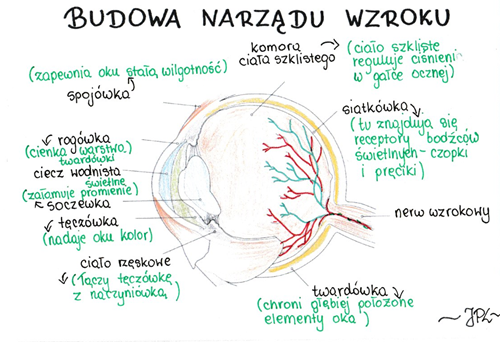 BUDOWA NARZĄDU WZROKU
komora
ciała szklistego
(ciało szkliste
reguluje ciśnieni
w gałce ocznej)
(zapewnia oku stałą wilgotność)
spojówka
siatkówka
(tu znajdują się
receptory bodźców
świetlnych-czopki
i pręciki)
rogówka
(cienka warstwa
twardówki
ciecz wodnista
świetlne
(załamuje promienie)
soczewka
tęczówka
(nadaje oku kolor)
nerw wzrokowy
ciało rzęskowe
(łączy tęczówkę
z naczyniówką)
twardówka
(chroni głębiej położone
elementy oka)
~JPL~